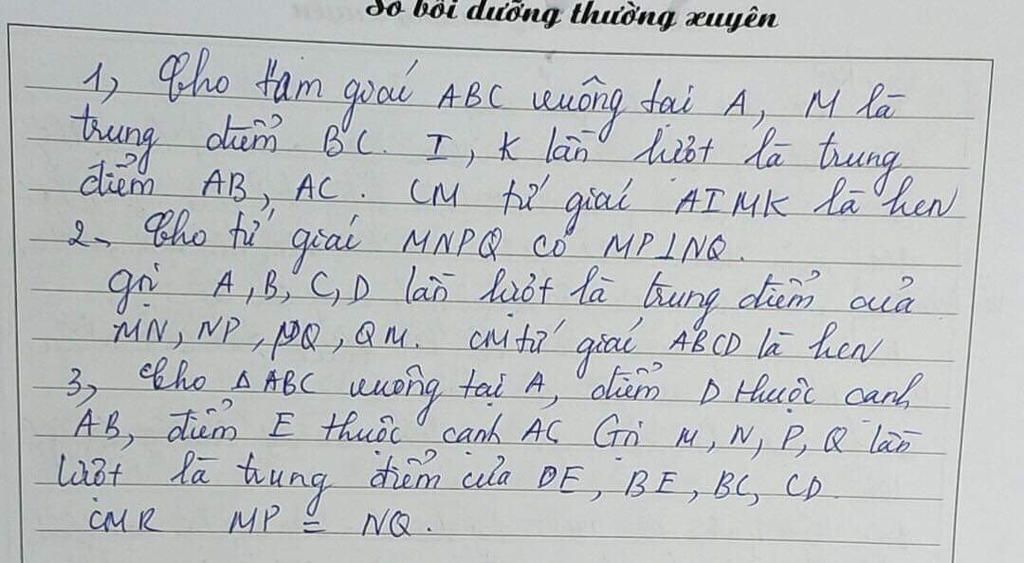 Sổ bồi dưỡng thường xuyên
1, Cho tam giác ABC vuông tại A, M là
trung điểm BC. I, K lần lượt là trung
điểm AB, AC. CM tứ giác AIMK là hcn
2, Cho tứ giác MNPQ có MP⊥NQ.
gọi A, B, C, D lần lượt là trung điểm của
MN, NP, PQ, QM. CM tứ giác ABCD là hcn
3, Cho Δ ABC vuông tại A, điểm D thuộc cạnh
AB, điểm E thuộc cạnh AC Gọi M, N, P, Q lần
lượt là trung điểm của DE, BE, BC, CD
CMR MP = NQ.